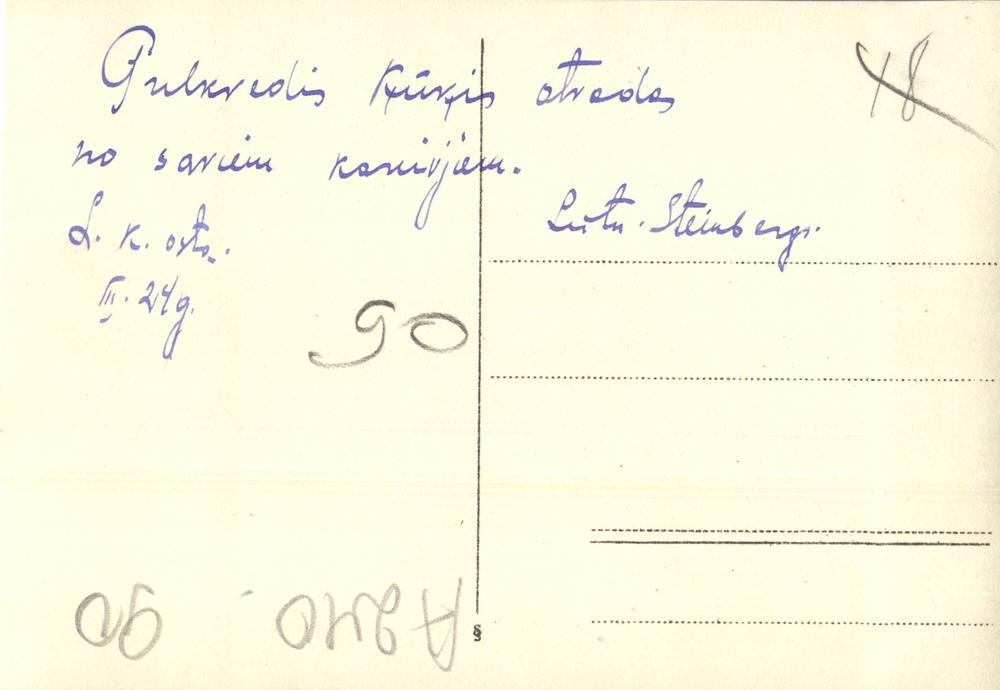 Pulkvedis Ķūķis atvadas
no saviem kareivjiem.
L. k. osta.
III. 24g.
Leitn. Šteinbergs.
18
90
A 240
90
§